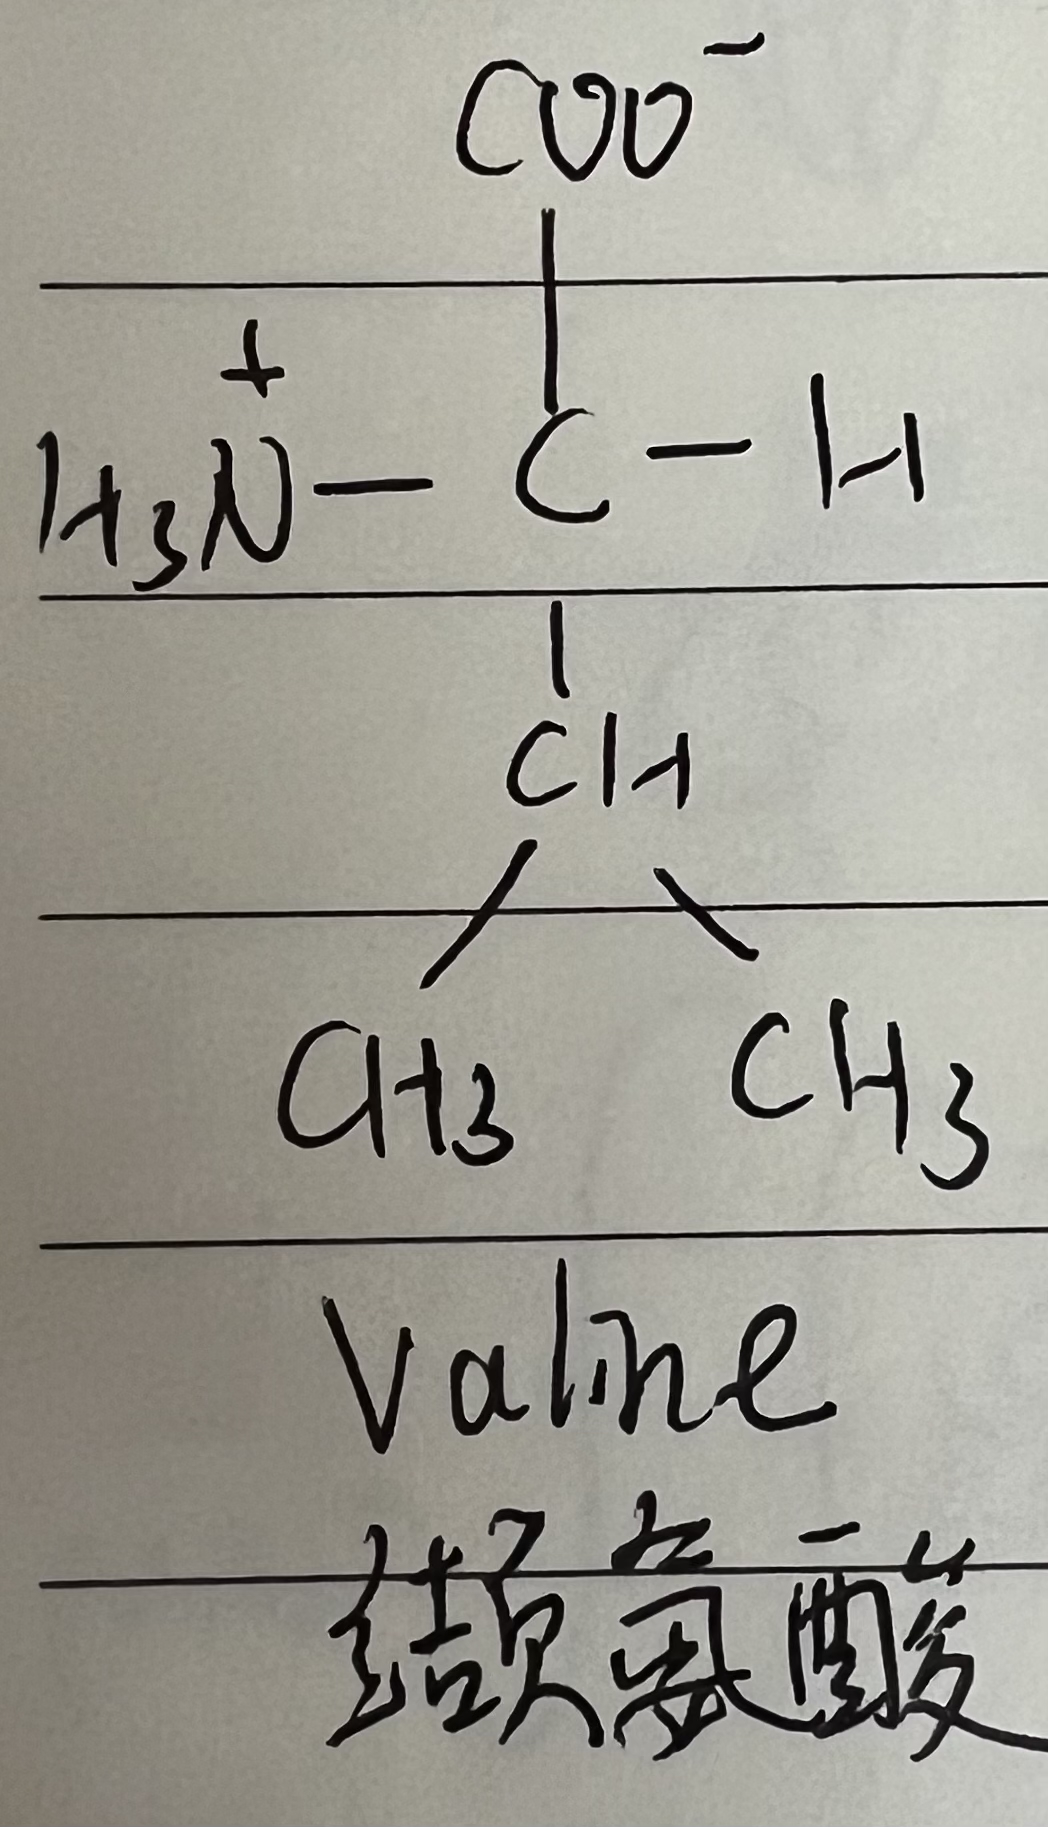 COO⁻
+
H₃N — C — H
CH
CH₃ CH₃
Valine
缬氨酸